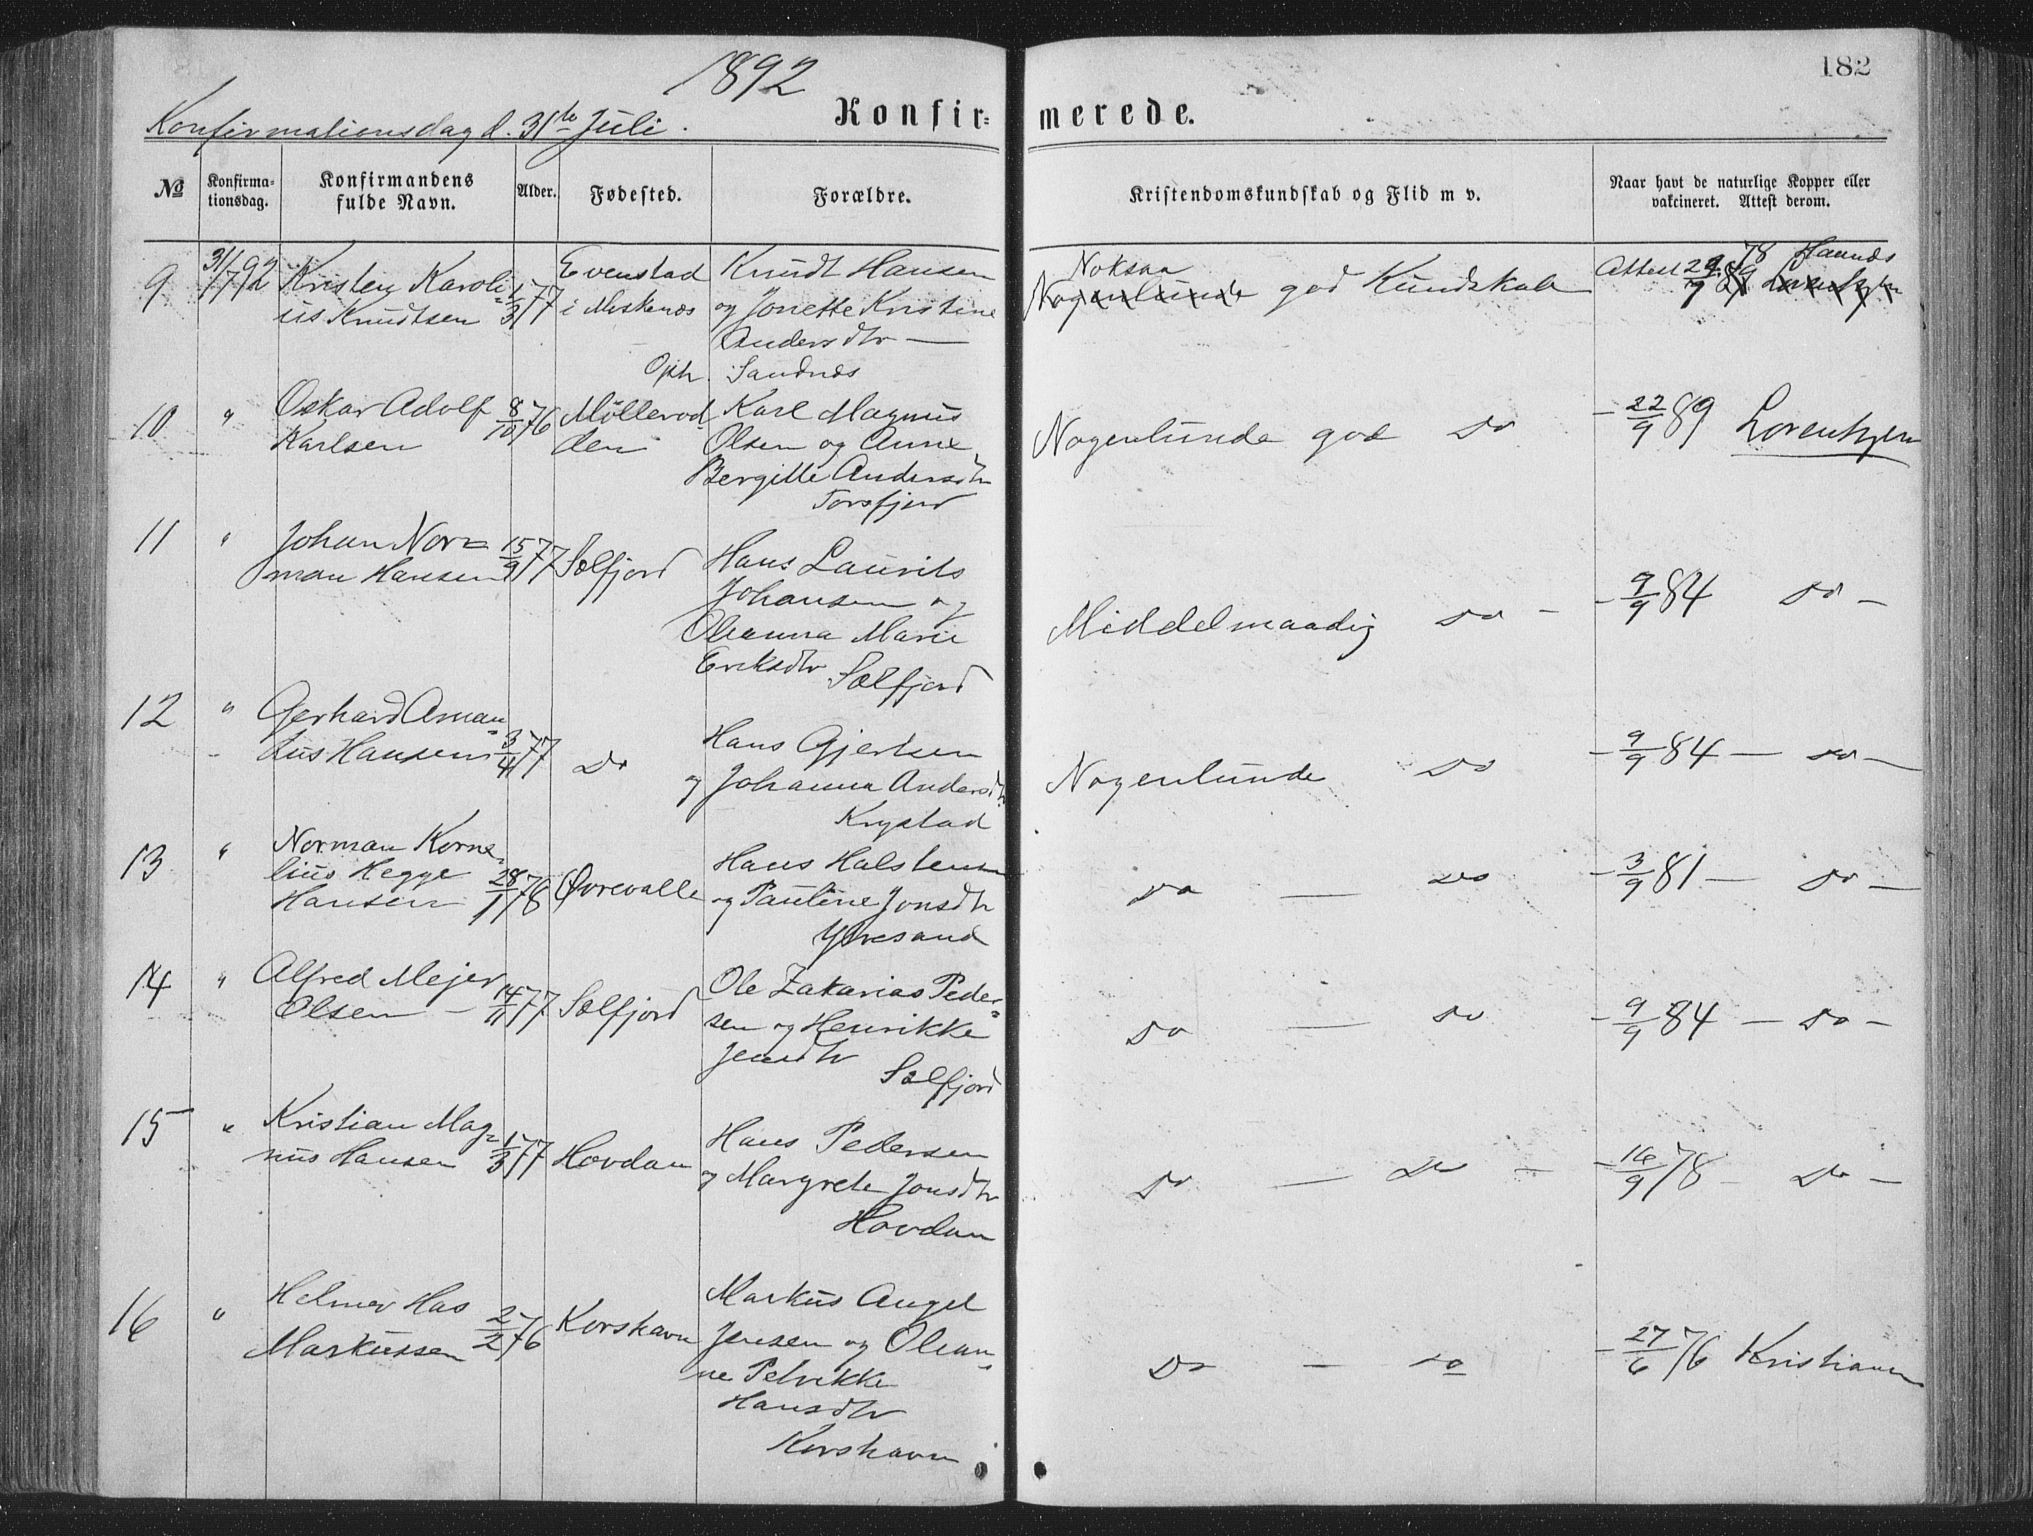 1892
182
Konfirmationsdag d. 31te Juli.
Konfir= merede.
No
Konfirma=
tionsdag.
Konfirmandens
fulde Navn.
Alder.
Fødested.
Forældre.
Kristendomskundskab og Flid m v.
Naar havt de naturlige Kopper eller
vakcineret. Attest derom.
9 31/7 92 Kristen Karoli= 1/3 77 Evenstad Knudt Hansen Noksaa
us Knudtsen i Moskenæs og Jonette Kristine Nogenlunde god Kundskab Attest 78 Haunæs
Andersdtr —
Oph. Sandnæs
10 " Oskar Adolf 8/10 76 Møllerod Karl Magnus
Karlsen den Olsen og Anne Nogenlunde god Do - 22/9 89 Lorentzen
Bergitte Andersdtr
Torsfjord
11 " Johan Nor= 15/9 77 Sælfjord Hans Laurits
man Hansen Johansen og
Oleanna Marie Middelmaadig Do - - 9/9 84 Do -
Eriksdtr Sælfjord
12 " Gerhard Aman= 3/4 77 Do Hans Gjertsen
dus Hansen og Johanna Andersdtr Nogenlunde Do - 9/9 84 - Do -
Krystad
13 " Norman Korne= Hans Halstensen
lius Hegge 28/1 78 Øvrevalle og Pauline Jonsdtr Do — Do - 3/9 81 - Do -
Hansen Ytresand
14 " Alfred Mejer Ole Zakarias Peder=
Olsen - 14/11 77 Sælfjord sen og Henrikke Do — Do - 9/9 84 - Do -
Jensdtr
Sælfjord
15 " Kristian Mag= 1/3 77 Hans Pedersen
nus Hansen Hovdan og Margrete Jonsdtr Do — Do - - 16/9 78 - Do -
Hovdan
16 " Helmer Has Markus Angel
Markussen 2/2 76 Korshavn Jensen og Olean= Do - Do - 27/6 76 Kristiansen
ne Petrikke
Hansdtr
Korshavn